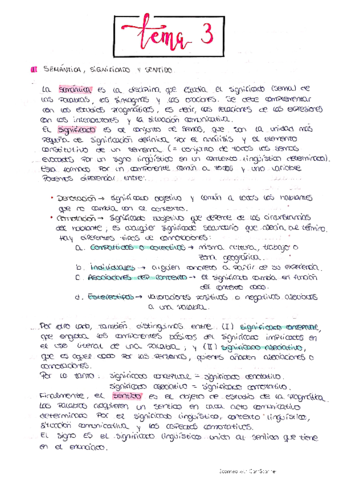 tema 3
SEMÁNTICA, SIGNIFICADO Y SENTIDO
La semántica es la disciplina que estudia el significado (semas) de
las palabras, los sintagmas y las oraciones. Se debe complementar
con los estudios pragmáticos, es decir, las relaciones de las expresiones
con los interlocutores y la situación comunicativa.
El significado es el conjunto de semas, que son la unidad más
pequeña de significación definida por el análisis y el elemento
constitutivo de un semema, (= conjunto de todos los semas
evocados por un signo lingüístico en un contexto lingüístico determinado).
Está formado por un componente común a todos y uno variable.
Podemos diferenciar entre:
· Denotación → significado objetivo y común a todos los hablantes
que no cambia con el contexto.
· Connotación → significado subjetivo que depende de las circunstancias
del hablante, es cualquier significado secundario que rodea al término.
Hay diferentes tipos de connotaciones:
a. Compartidas o colectivas → misma cultura, trabajo o
zona geográfica.
b. Individuales → alguien concreto a partir de su experiencia.
c. Asociaciones del contexto → el significado cambia en función
del contexto dado.
d. Ponderativas → valoraciones positivas o negativas asociadas
a una palabra.
Por otro lado, también distinguimos entre (1) significado conceptual,
que engloba los componentes básicos de significado implicados en
el uso literal de una palabra, y (2) significado asociativo,
que es aquel dado por las personas, quienes añaden asociaciones o
connotaciones.
Por lo tanto: significado conceptual = significado denotativo.
significado asociativo = significado connotativo.
Finalmente, el sentido es el objeto de estudio de la pragmática.
Las palabras adquieren un sentido en cada acto comunicativo
determinado por el significado lingüístico, contexto lingüístico,
situación comunicativa y los aspectos connotativos.
El signo es el significado lingüístico unido al sentido que tiene
en el enunciado.
Scanned by CamScanner